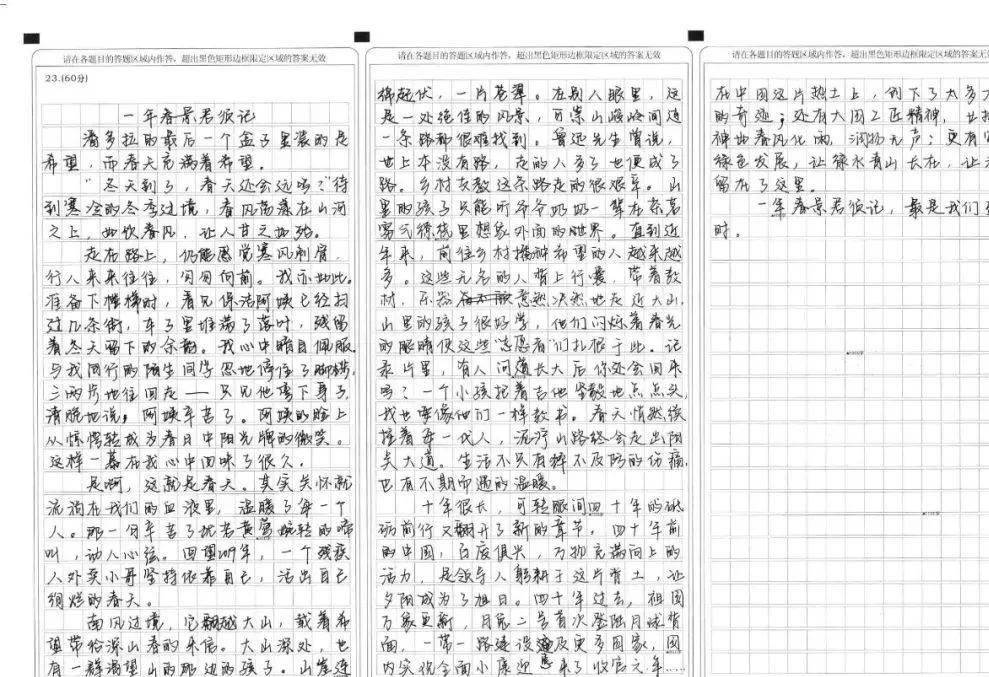 请在各题目的答题区域内作答，超出黑色矩形边框限定区域的答案无效
23.(60分)
一年春景君须记
潘多拉的最后一个盒子里装的是
希望，而春天充满着希望。
“冬天到了，春天还会远吗？”待
到寒冷的冬季过境，春风荡漾在山河
之上，如饮春风，让人甘之如饴。
走在路上，仍能感觉寒风刺骨，
行人来来往往，匆匆向前。我亦如此。
准备下楼梯时，看见保洁阿姨已经扫
过几条街，车子里堆满了落叶，残留
着冬天留下的余韵。我心中暗自佩服，
与我同行的陌生同学忽地停住了脚步，
三两步地往回走——只见他弯下身子，
清脆地说，阿姨辛苦了。阿姨的脸上
从惊愕转成为春日中阳光般的微笑。
这样一幕在我心中回味了很久。
是啊，这就是春天。其实关怀就
流淌在我们的血液里，温暖了每一个
人。那一句辛苦了犹若黄莺婉转的啼
叫，动人心弦。回望2019年，一个残疾
人外卖小哥坚持依靠自己，活出自己
绚烂的春天。
面风过境，它翻越大山，载着希
望带给深山春的来信。大山深处，也
有一群渴望山的那边的孩子。山峦连
请在各题目的答题区域内作答，超出黑色矩形边框限定区域的答案无效
绵起伏，一片苍翠。在别人眼里，这
是一处绝佳的风景，可崇山峻岭间连
一条路都很难找到。鲁迅先生曾说，
世上本没有路，走的人多了也便成了
路。乡村支教这条路走的很艰辛。山
里的孩子只能听爷爷奶奶一辈在茶茗
雾气缭绕里想象外面的世界。直到近
年来，前往乡村播种希望的人越来越
多。这些无名的人背上行囊，带着教
材，乐器毅然决然地走进大山，
山里的孩子很好学，他们闪烁着春光
的眼睛使这些志愿者们扎根于此。记
录片里，有人问道长大后你还会回来
吗？一个小孩抱着吉他坚毅地点点头，
我也要像他们一样教书。春天悄然缭
绕着每一代人，泥泞山路终会走出阳
关大道。生活不只有猝不及防的伤痛，
也有不期而遇的温暖。
十年很长，可转眼间四十年的砥
砺前行又翻开了新的章节，四十年前
的中国，百废俱兴，万物充满向上的
活力，是领导人躬耕于这片青土，让
夕阳成为了旭日。四十年过去，祖国
万象更新，目嫦二号首次登陆月球背
面，一带一路建设遍及更多国家，国
内实现全面小康迎来了收官元年……
请在各题目的答题区域内作答，超出黑色矩形边框限定区域的答案无效
在中国这片热土上，创下了太多
的奇迹；还有大国工匠精神，
神如春风化雨，润物无声；更有
绿色发展，让绿水青山长在，让
留在了这里。
一年春景君须记，最是我们
时。